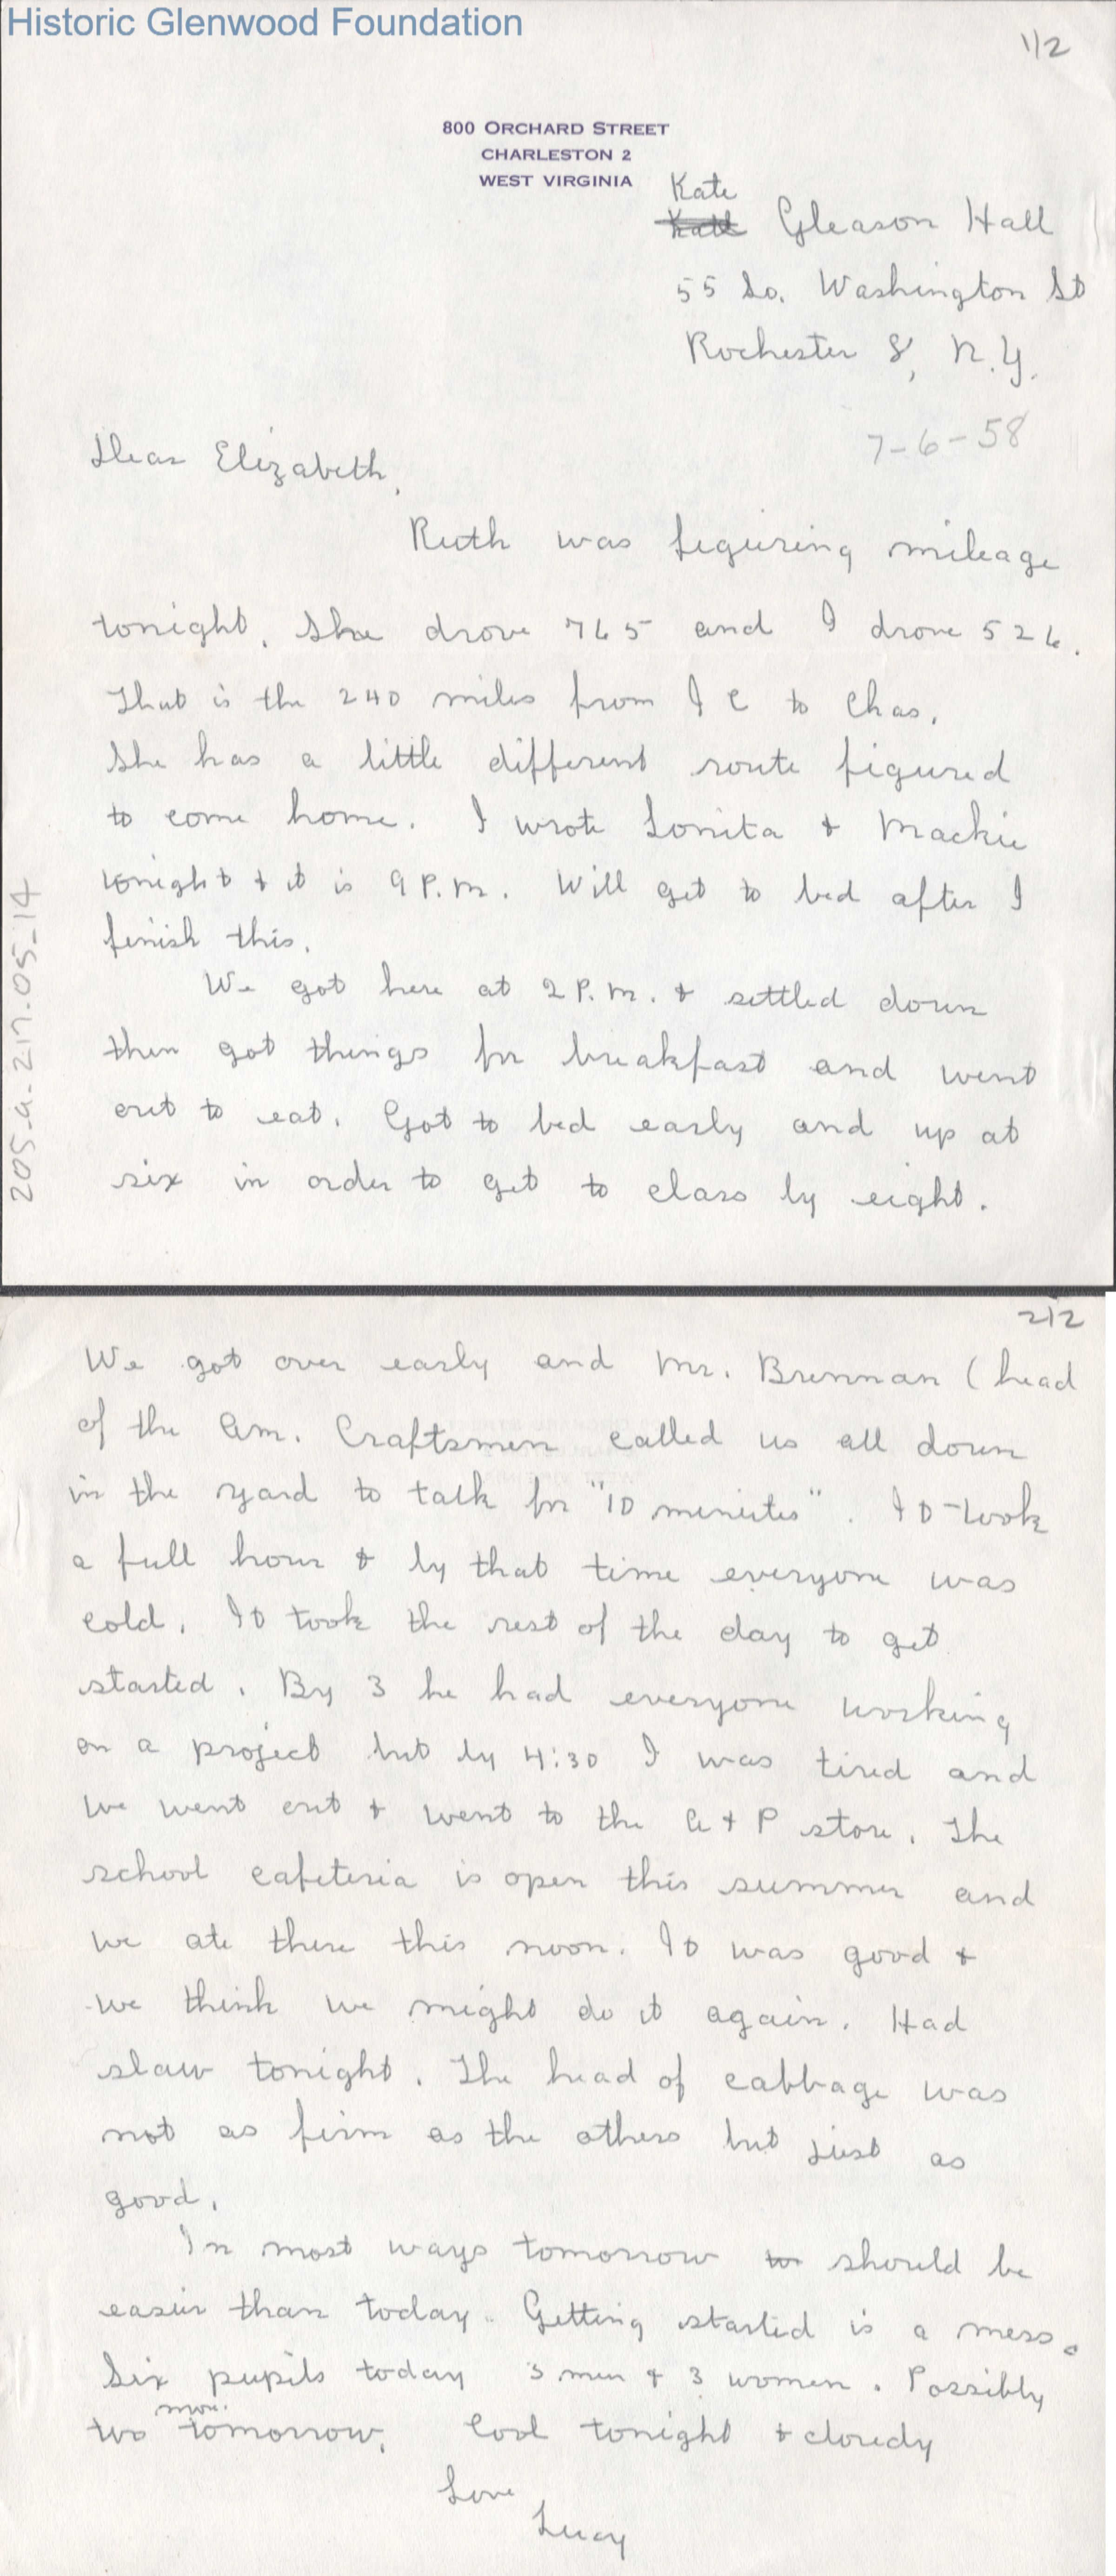 Historic Glenwood Foundation
1/2
800 ORCHARD STREET
CHARLESTON 2
WEST VIRGINIA
Kate
Gleason Hall
55 So. Washington St
Rochester 8, N.Y.
7-6-58
Dear Elizabeth,
Ruth was figuring mileage
tonight. She drove 765 and I drove 526.
That is the 240 miles from I C to Chas.
She has a little different route figured
to come home. I wrote Lonita & Mackie
tonight & it is 9 P.M. Will get to bed after I
finish this.
We got here at 2 P.M. & settled down
then got things for breakfast and went
out to eat. Got to bed early and up at
six in order to get to class by eight.
205.a.217.05.14
2/2
We got over early and Mr. Brennan (head
of the Am. Craftsmen called us all down
in the yard to talk for "10 minutes". It took
a full hour & by that time everyone was
cold. It took the rest of the day to get
started. By 3 he had everyone working
on a project but by 4:30 I was tired and
we went out & went to the A & P store. The
school cafeteria is open this summer and
we ate there this noon. It was good &
we think we might do it again. Had
slaw tonight. The head of cabbage was
not as firm as the others but just as
good.
In most ways tomorrow should be
easier than today. Getting started is a mess.
Six pupils today 3 men & 3 women. Possibly
more
two tomorrow. Cool tonight & cloudy
Love
Lucy